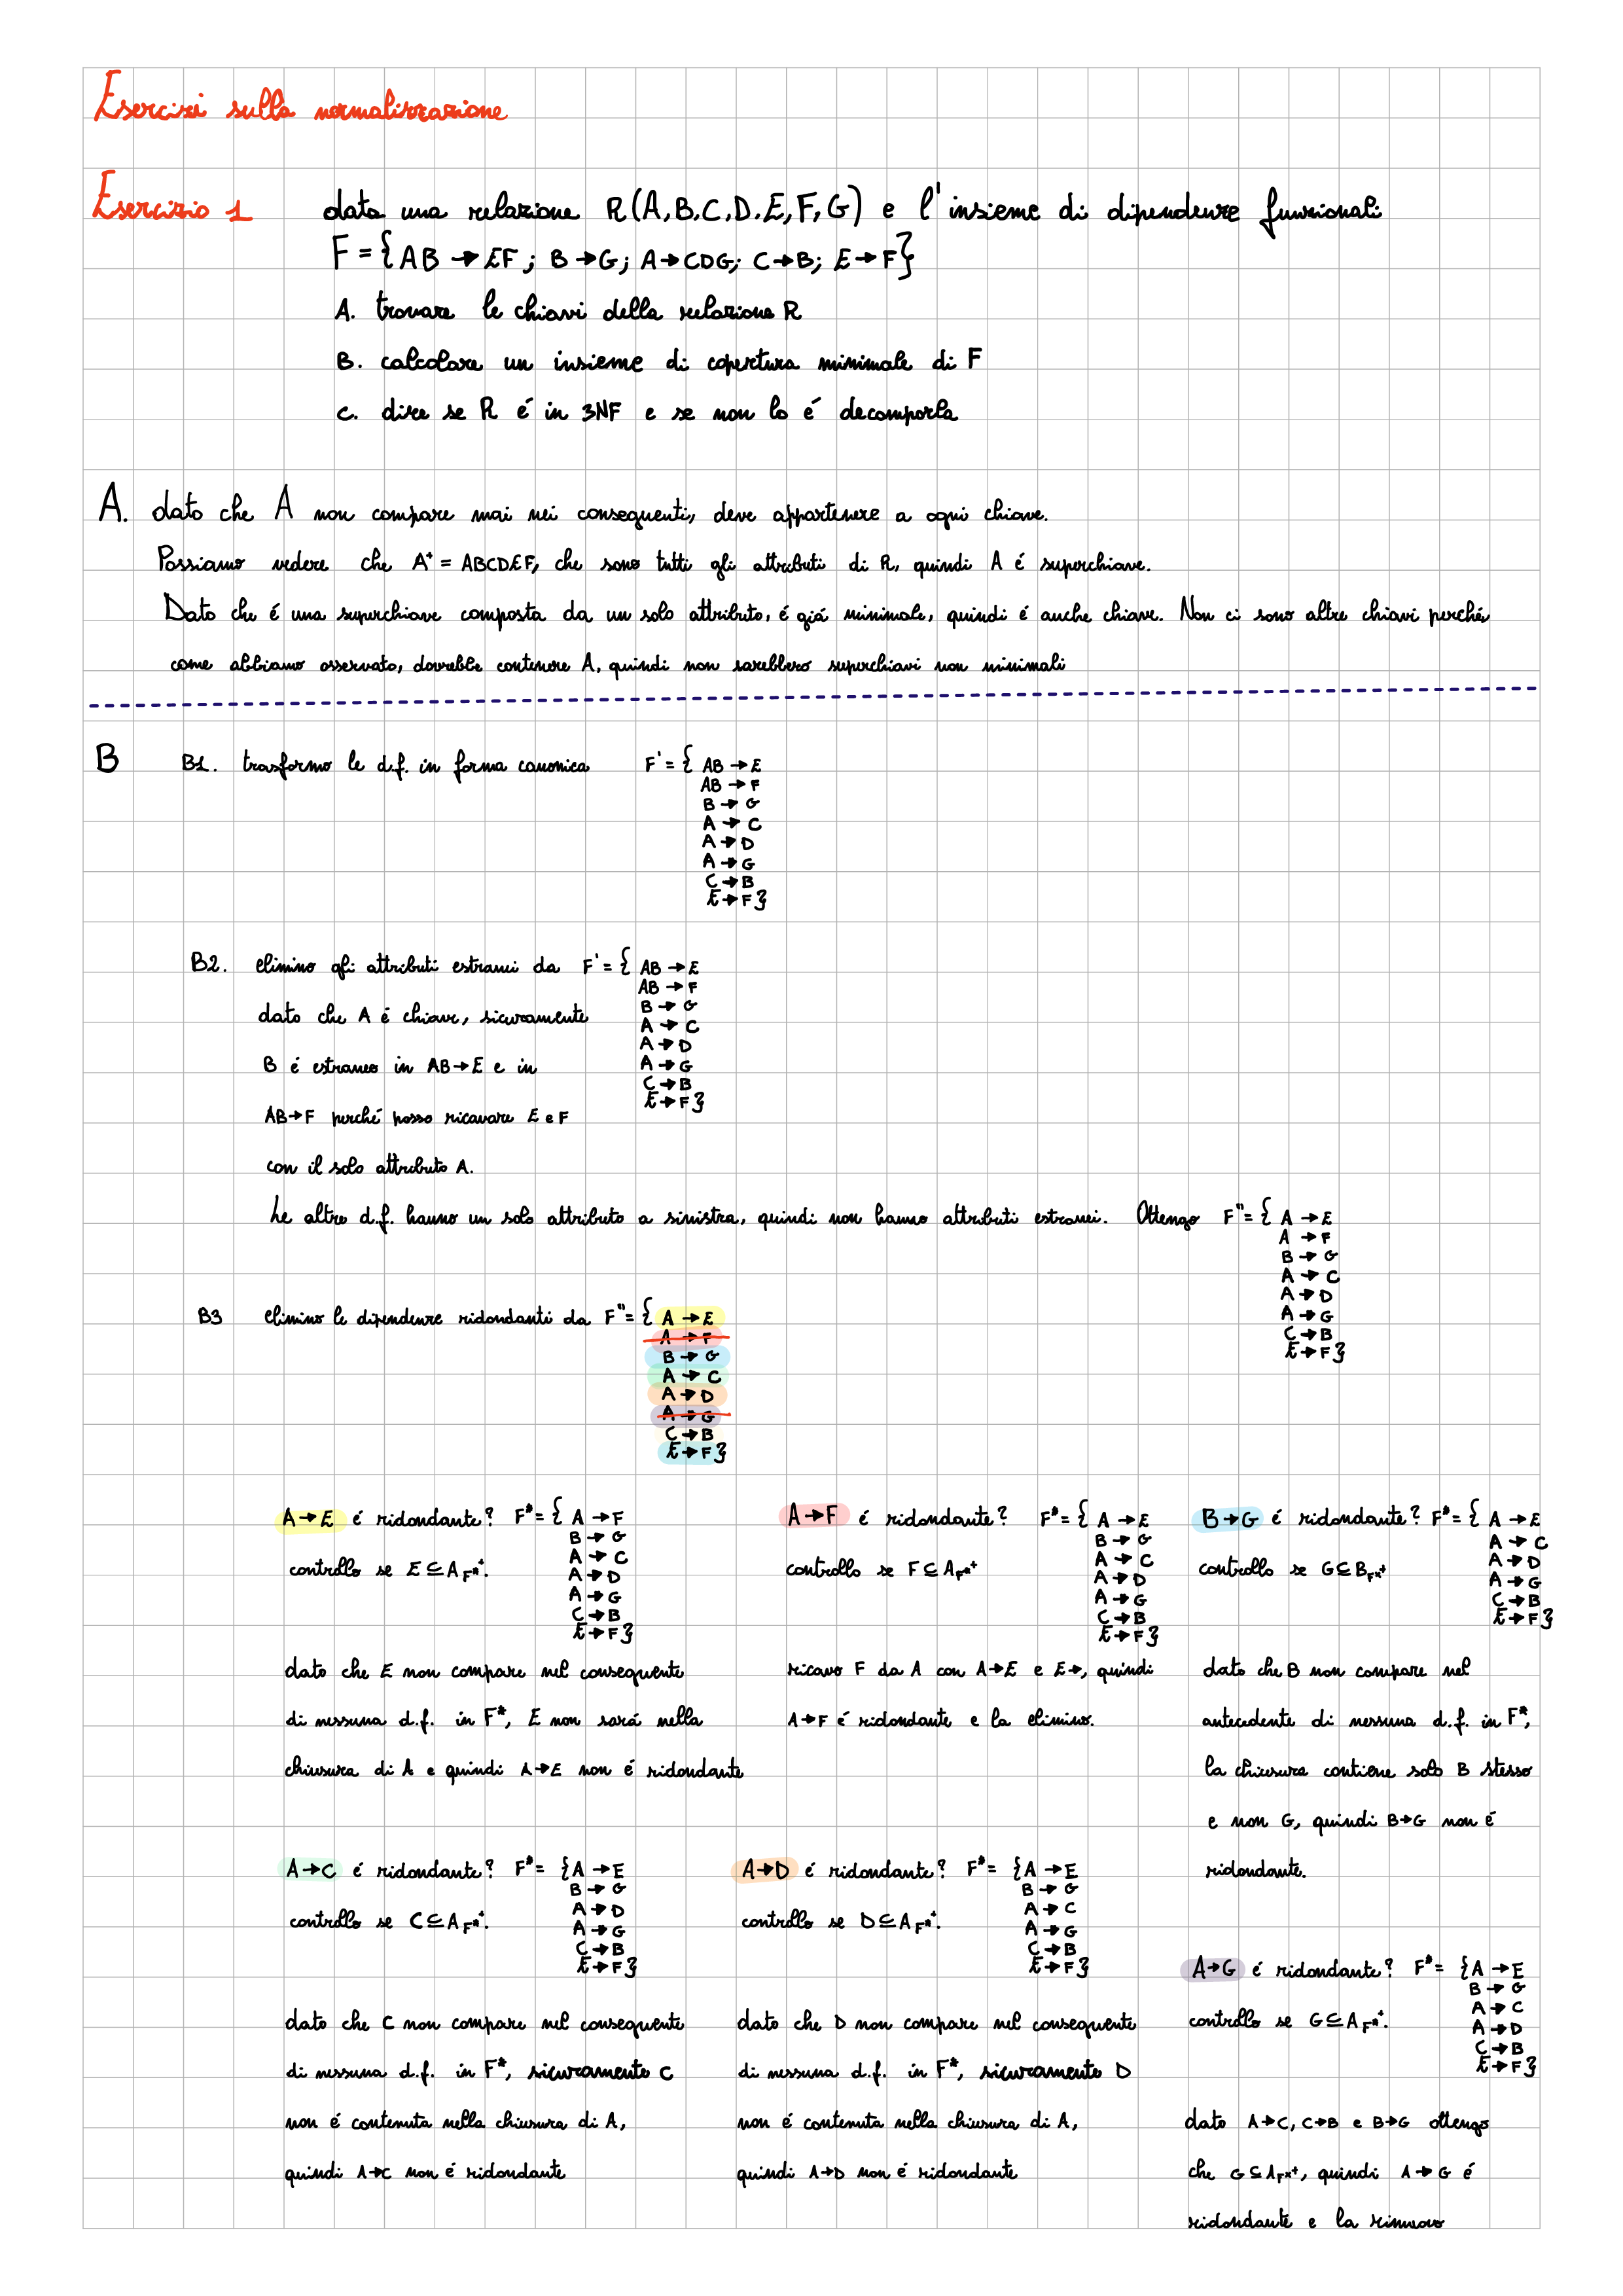 Esercizi sulla normalizzazione
Esercizio 1 data una relazione R(A,B,C,D,E,F,G) e l'insieme di dipendenze funzionali
F={AB→EF; B→G; A→CDG; C→B; E→F}
A. trovare le chiavi della relazione R
B. calcolare un insieme di copertura minimale di F
C. dire se R é in 3NF e se non lo é decomporla
A. dato che A non compare mai nei conseguenti, deve appartenere a ogni chiave.
Possiamo vedere che A⁺ = ABCDEF, che sono tutti gli attributi di R, quindi A é superchiave.
Dato che é una superchiave composta da un solo attributo, é giá minimale, quindi é anche chiave. Non ci sono altre chiavi perché
come abbiamo osservato, dovrebbe contenere A, quindi non sarebbero superchiavi non minimali
B B1. trasformo le d.f. in forma canonica F'={ AB→E
AB→F
B→G
A→C
A→D
A→G
C→B
E→F}
B2. elimino gli attributi estranei da F'={ AB→E
AB→F
dato che A é chiave, sicuramente B→G
A→C
A→D
B é estraneo in AB→E e in A→G
C→B
E→F}
AB→F perché posso ricavare E e F
con il solo attributo A.
Le altre d.f. hanno un solo attributo a sinistra, quindi non hanno attributi estranei. Ottengo F"={ A→E
A→F
B→G
A→C
A→D
A→G
C→B
E→F}
B3 elimino le dipendenze ridondanti da F"={ A→E
A→F
B→G
A→C
A→D
A→G
C→B
E→F}
A→E é ridondante? F*={ A→F
B→G
A→C
controllo se E⊆A_F*⁺.
A→D
A→G
C→B
E→F}
dato che E non compare nel conseguente
di nessuna d.f. in F*, E non sará nella
chiusura di A e quindi A→E non é ridondante
A→F é ridondante? F*={ A→E
B→G
A→C
controllo se F⊆A_F*⁺
A→D
A→G
C→B
E→F}
ricavo F da A con A→E e E→, quindi
A→F é ridondante e la elimino.
B→G é ridondante? F*={ A→E
A→C
A→D
controllo se G⊆B_F*⁺
A→G
C→B
E→F}
dato che B non compare nel
antecedente di nessuna d.f. in F*,
la chiusura contiene solo B stesso
e non G, quindi B→G non é
ridondante.
A→C é ridondante? F*= {A→E
B→G
A→D
controllo se C⊆A_F*⁺.
A→G
C→B
E→F}
dato che C non compare nel conseguente
di nessuna d.f. in F*, sicuramente C
non é contenuta nella chiusura di A,
quindi A→C non é ridondante
A→D é ridondante? F*= {A→E
B→G
A→C
controllo se D⊆A_F*⁺.
A→G
C→B
E→F}
dato che D non compare nel conseguente
di nessuna d.f. in F*, sicuramente D
non é contenuta nella chiusura di A,
quindi A→D non é ridondante
A→G é ridondante? F*= {A→E
B→G
A→C
controllo se G⊆A_F*⁺.
A→D
C→B
E→F}
dato A→C, C→B e B→G ottengo
che G⊆A_F*⁺, quindi A→G é
ridondante e la rimuovo